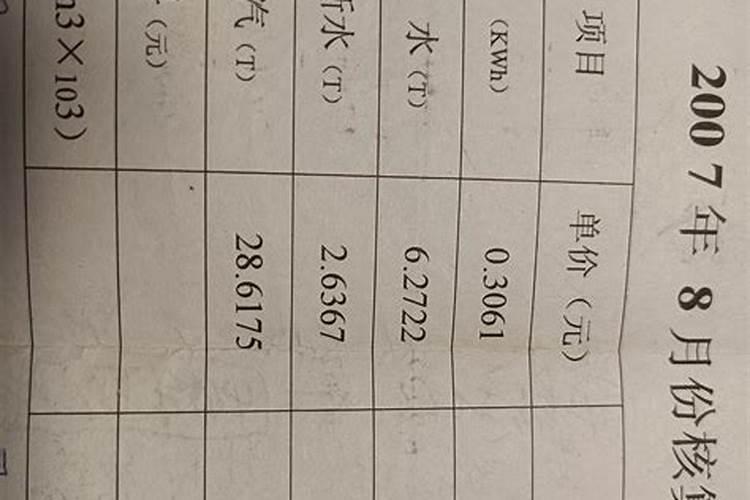 2007年8月份核
项目 单价（元）
（KWh） 0.3061
水（T） 6.2722
水（T） 2.6367
汽（T） 28.6175
（元）
m3×103）